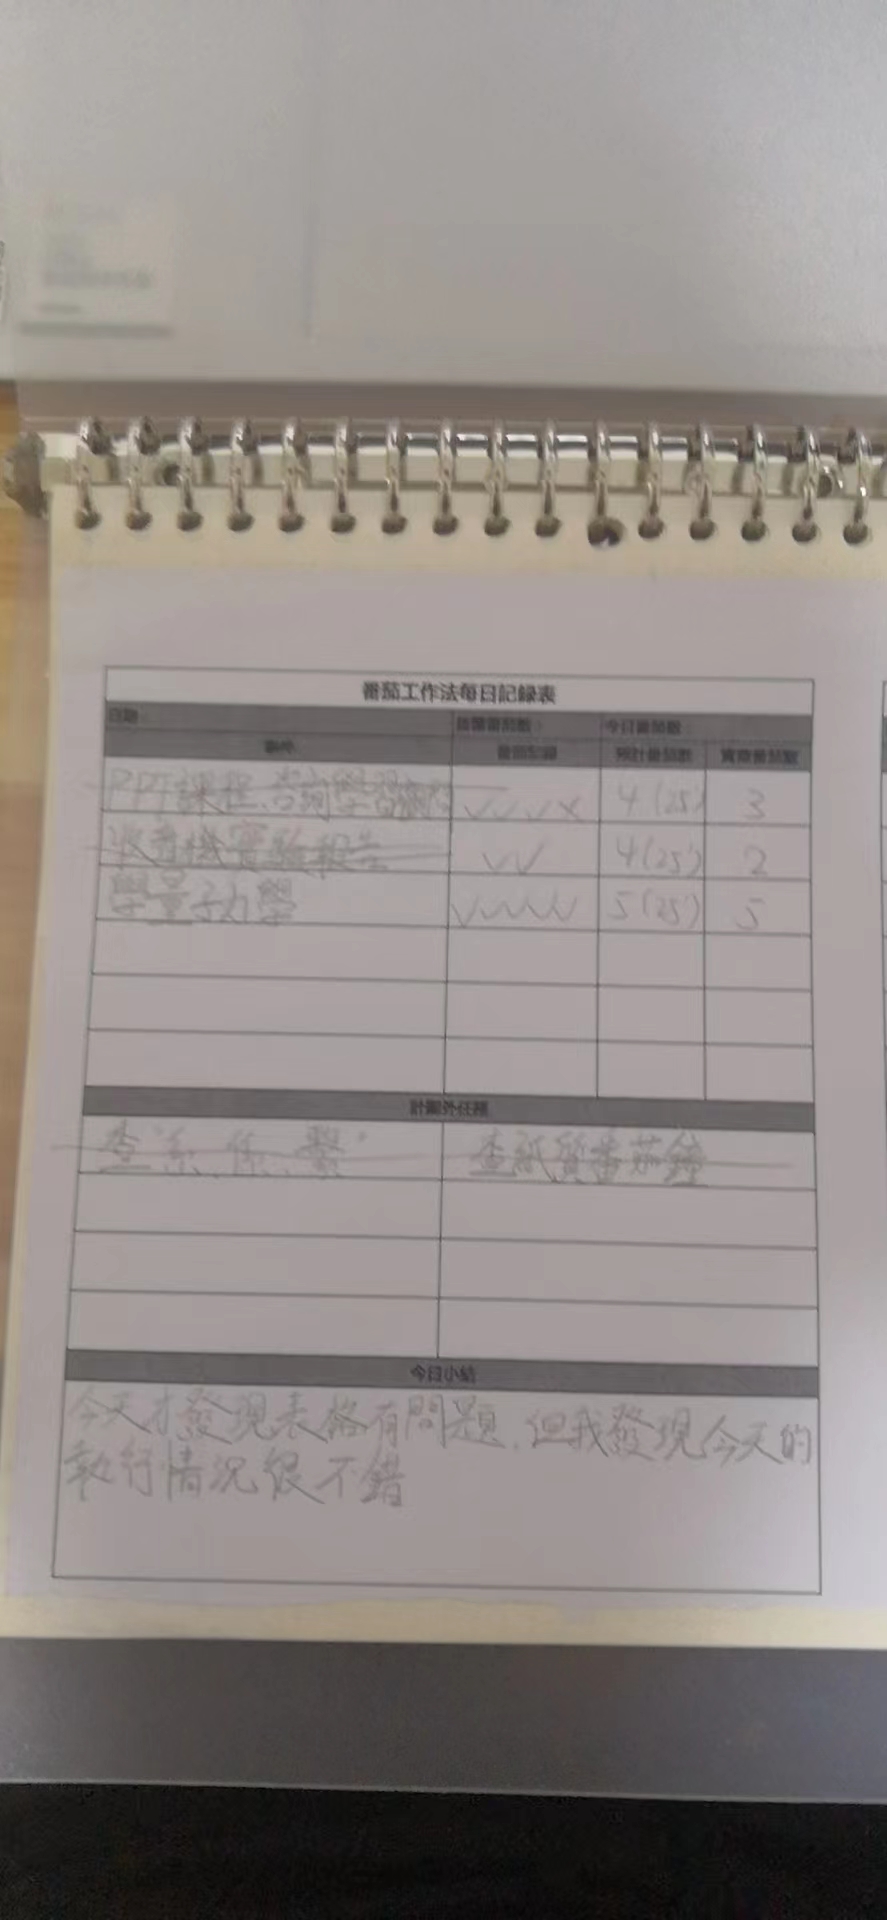 番茄工作法每日記錄表
日期：
今日番茄數：
事件
番茄記錄
預計番茄數 實際番茄數
PPT課程.咨詢學習
✓✓✓✕ 4(25') 3
收音機實驗報告 ✓✓ 4(25') 2
學量子力學 ✓✓✓✓✓ 5(25') 5
計劃外任務
查"系、係、繫" 查紙質番茄鐘
今日小結
今天才發現表格有問題.但我發現今天的
執行情況很不錯